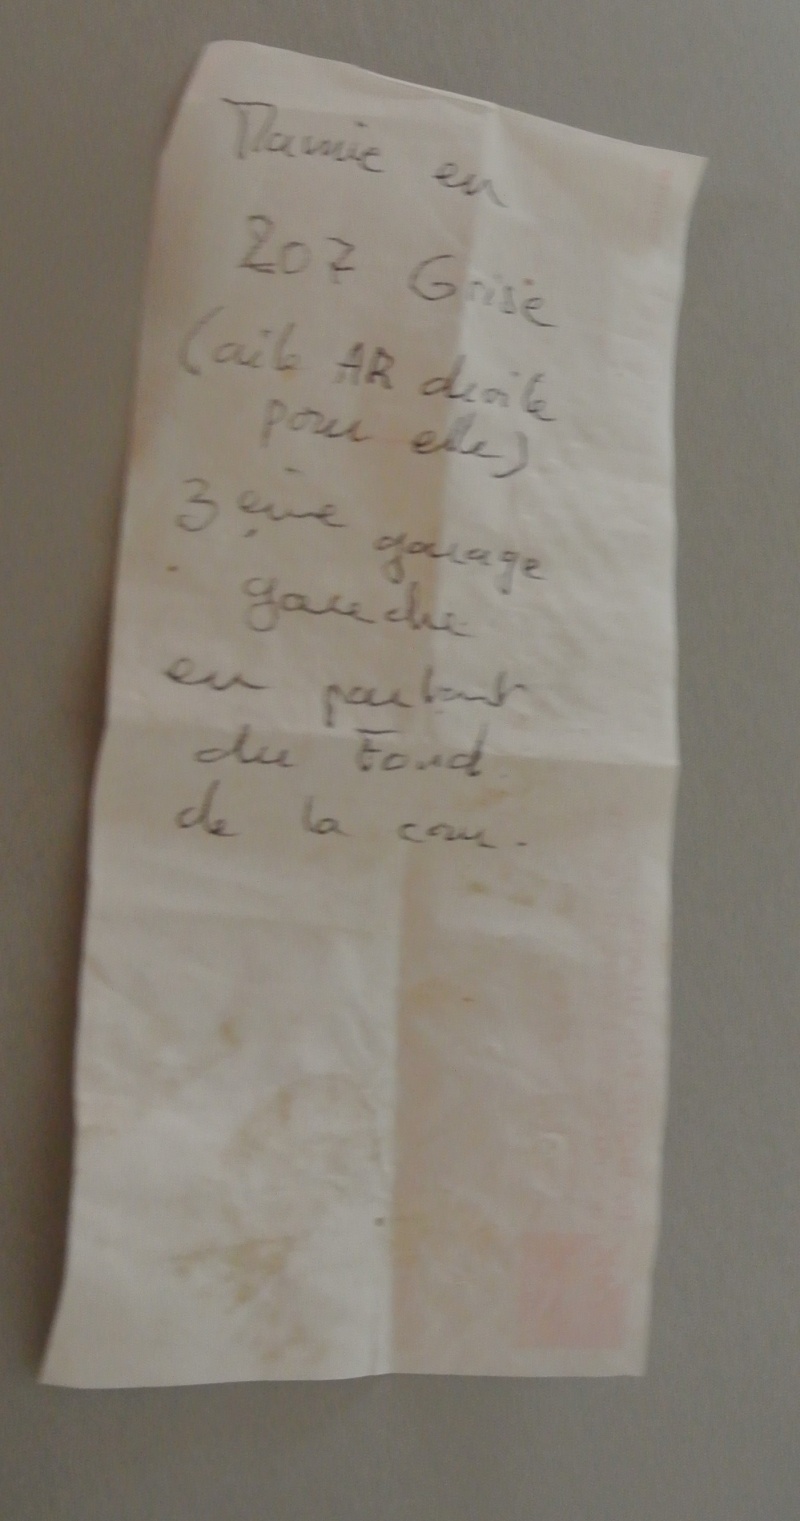 Mamie en
207 Grise
(aile AR droite
pour elle)
3 ème garage
gauche
en partant
du Fond
de la cour.